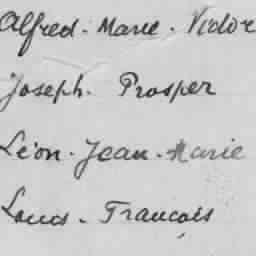 Alfred - Marie - Victor
Joseph - Prosper
Léon - Jean - Marie
Louis - François